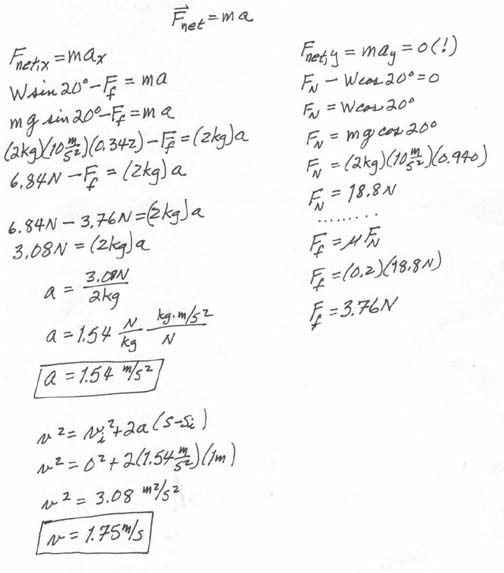 F⃗net = ma
Fnet,x = max
W sin 20° − Ff = ma
mg sin 20° − Ff = ma
(2kg)(10 m/s²)(0.342) − Ff = (2kg)a
6.84N − Ff = (2kg)a
6.84N − 3.76N = (2kg)a
3.08N = (2kg)a
a = 3.08N/2kg
a = 1.54 N/kg kg·m/s²/N
a = 1.54 m/s²
v² = vi² + 2a(s−si)
v² = 0² + 2(1.54 m/s²)(1m)
v² = 3.08 m²/s²
v = 1.75 m/s
Fnet,y = may = 0(!)
FN − W cos 20° = 0
FN = W cos 20°
FN = mg cos 20°
FN = (2kg)(10 m/s²)(0.940)
FN = 18.8N
.........
Ff = μFN
Ff = (0.2)(18.8N)
Ff = 3.76N